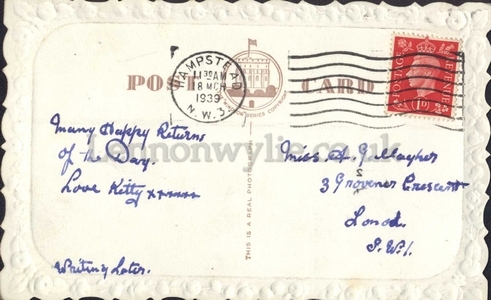 POST CARD
HAMPSTEAD
11 30 AM
8 MCH
1939
N.W.3
POSTAGE
1D
Many Happy Returns
of the Day.
Love Kitty xxxxxx
Writing Later.
THIS IS A REAL PHOTOGRAPH
Miss A. Gallagher
3 Grovener Crescent
Lond.
S.W.1.
Lennonwylie.co.uk